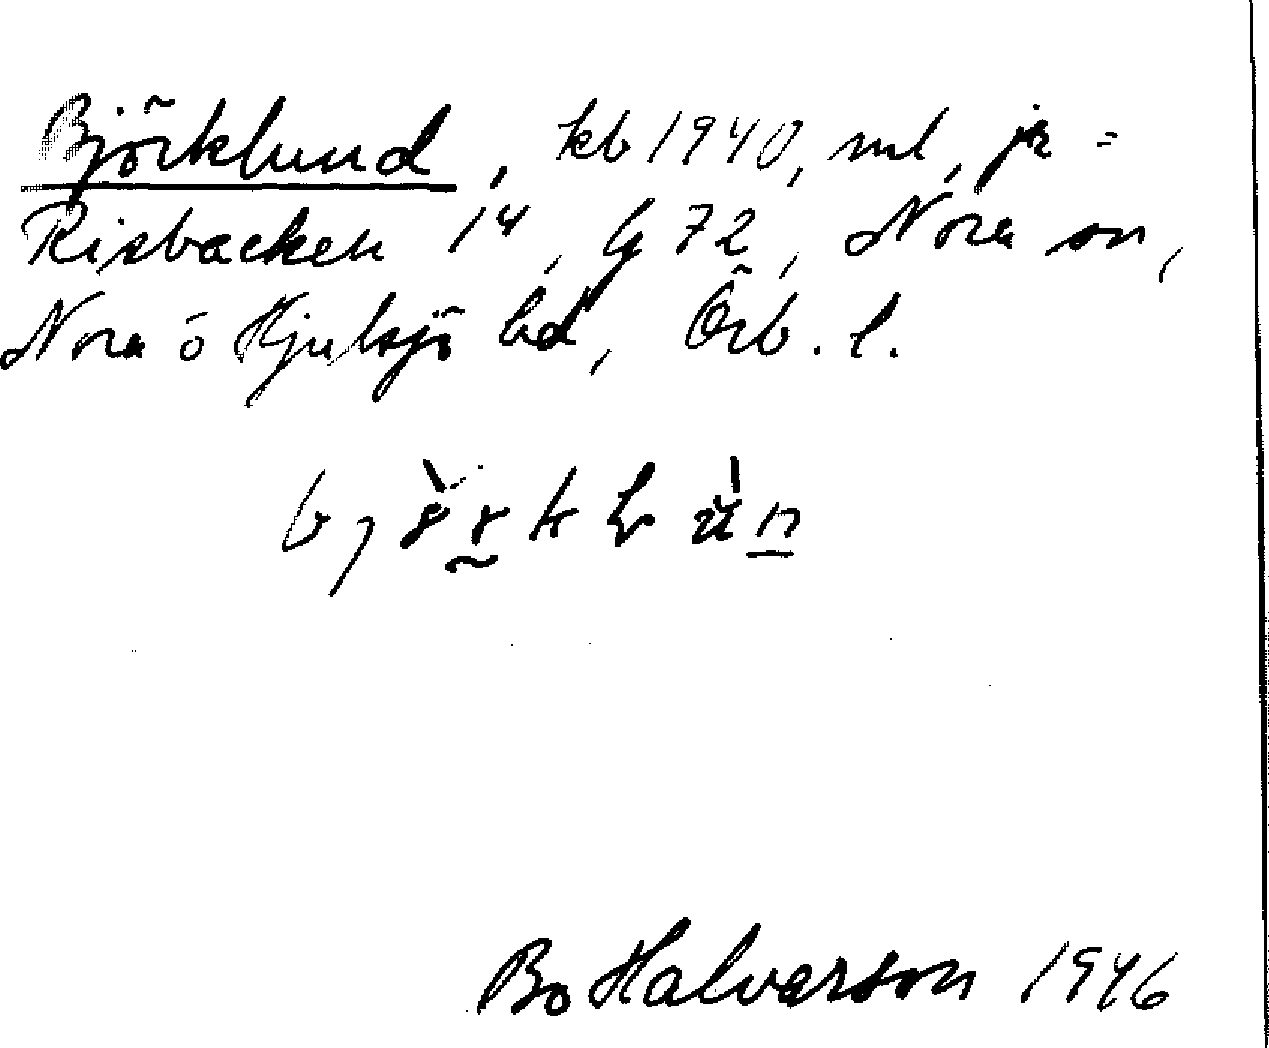 Björklund, kb 1940, ml, jr =
Risbacken 1⁴, G 72, Nora sn,
Nora o Hjulsjö bd, Örb. l.
Bo Halvarson 1946